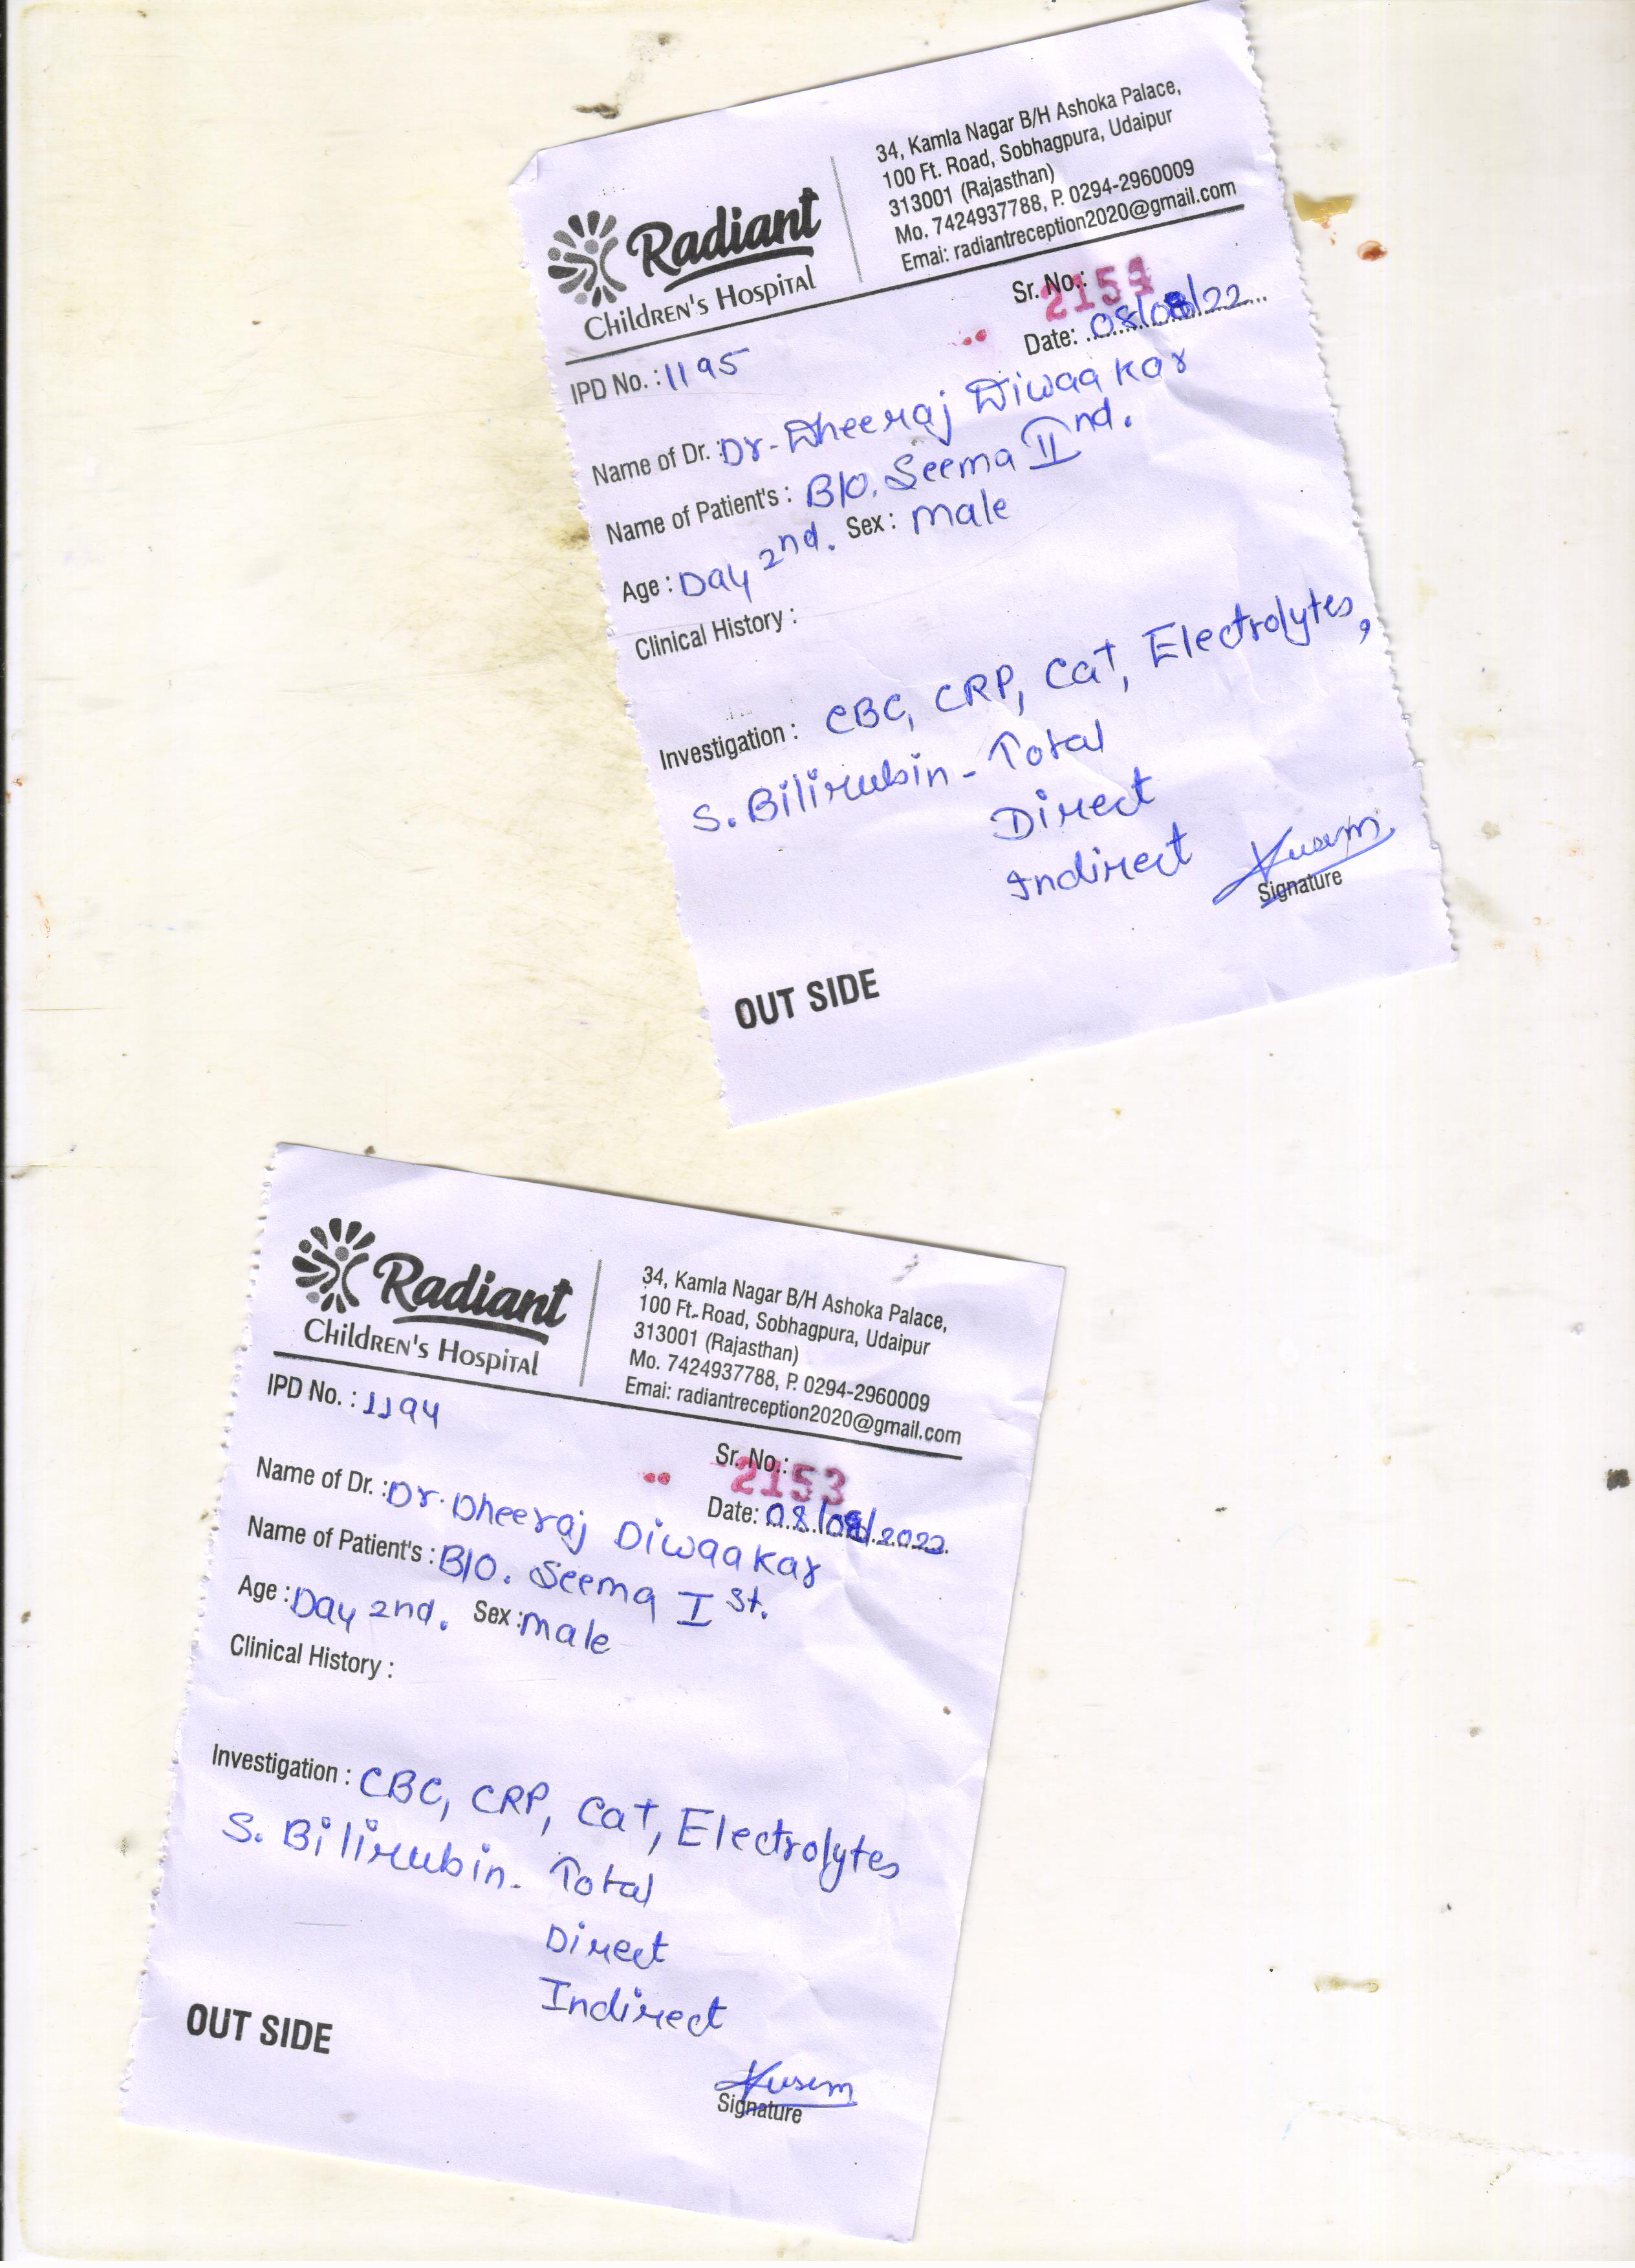 Radiant
Children's Hospital
34, Kamla Nagar B/H Ashoka Palace,
100 Ft. Road, Sobhagpura, Udaipur
313001 (Rajasthan)
Mo. 7424937788, P. 0294-2960009
Emai: radiantreception2020@gmail.com
Sr. No.: 2154
IPD No. : 1195
Date: 08/08/22
Name of Dr. : Dr. Dheeraj Diwaakar
Name of Patient's : B/O. Seema II nd.
Age : Day 2nd. Sex : male
Clinical History :
Investigation : CBC, CRP, Ca+, Electrolytes,
S. Bilirubin - Total
Direct
Indirect
Kusum
Signature
OUT SIDE
Radiant
Children's Hospital
34, Kamla Nagar B/H Ashoka Palace,
100 Ft. Road, Sobhagpura, Udaipur
313001 (Rajasthan)
Mo. 7424937788, P. 0294-2960009
Emai: radiantreception2020@gmail.com
IPD No. : 1194
Sr. No.: 2153
Date: 08/08/2022
Name of Dr. : Dr. Dheeraj Diwaakar
Name of Patient's : B/O. Seema I st.
Age : Day 2nd. Sex : male
Clinical History :
Investigation : CBC, CRP, Ca+, Electrolytes
S. Bilirubin - Total
Direct
Indirect
Kusum
Signature
OUT SIDE